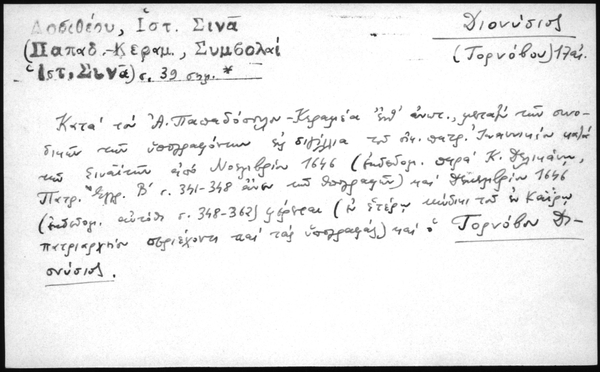 Δοσιθέου, Ἱστ. Σινᾶ
(Παπαδ.-Κεραμ., Συμβολαί
Ἱστ. Σινᾶ) σ. 39 σημ. *
Διονύσιος
(Τορνόβου) 17 αἰ.
Κατά τόν Ἀ. Παπαδόπουλον-Κεραμέα ἔνθ' ἀνωτ., μεταξύ τῶν συνο-
δικῶν τῶν ὑπογραφόντων εἰς σιγίλλια τοῦ οἰκ. πατρ. Ἰωαννικίου κατά
τῶν Σιναϊτῶν ἀπό Νοεμβρίου 1646 (ἐκδεδομ. παρά Κ. Δελικάνη,
Πατρ. Ἔγγρ. Β' σ. 341-348 ἄνευ τῶν ὑπογραφῶν) καί Δεκεμβρίου 1646
(ἐκδεδομ. αὐτόθι σ. 348-362) φέρεται (ἐν ἑτέρῳ κώδικι τοῦ ἐν Καΐρῳ
πατριαρχείου περιέχοντι καί τάς ὑπογραφάς) καί ὁ Τορνόβου Δι-
ονύσιος.